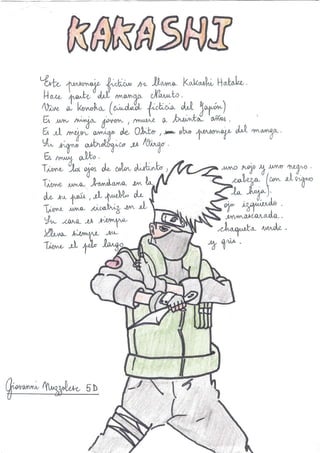 KAKASHI
Este personaje ficticio se llama Kakashi Hatake.
Hace parte del manga Naruto.
Vive a Konoha (ciudad ficticia del Japón)
Es un ninja joven, muere a treinta años.
Es el mejor amigo de Obito, otro personaje del manga.
Su signo astrológico es Virgo.
Es muy alto.
Tiene los ojos de color distinto, uno rojo y uno negro.
Tiene una bandana en la cabeza (con el signo
de su país, el pueblo de la hoja).
Tiene una cicatriz en el ojo izquierdo.
Su cara es siempre enmascarada.
Lleva siempre su chaqueta verde.
Tiene el pelo largo y gris.
Giovanni 5D